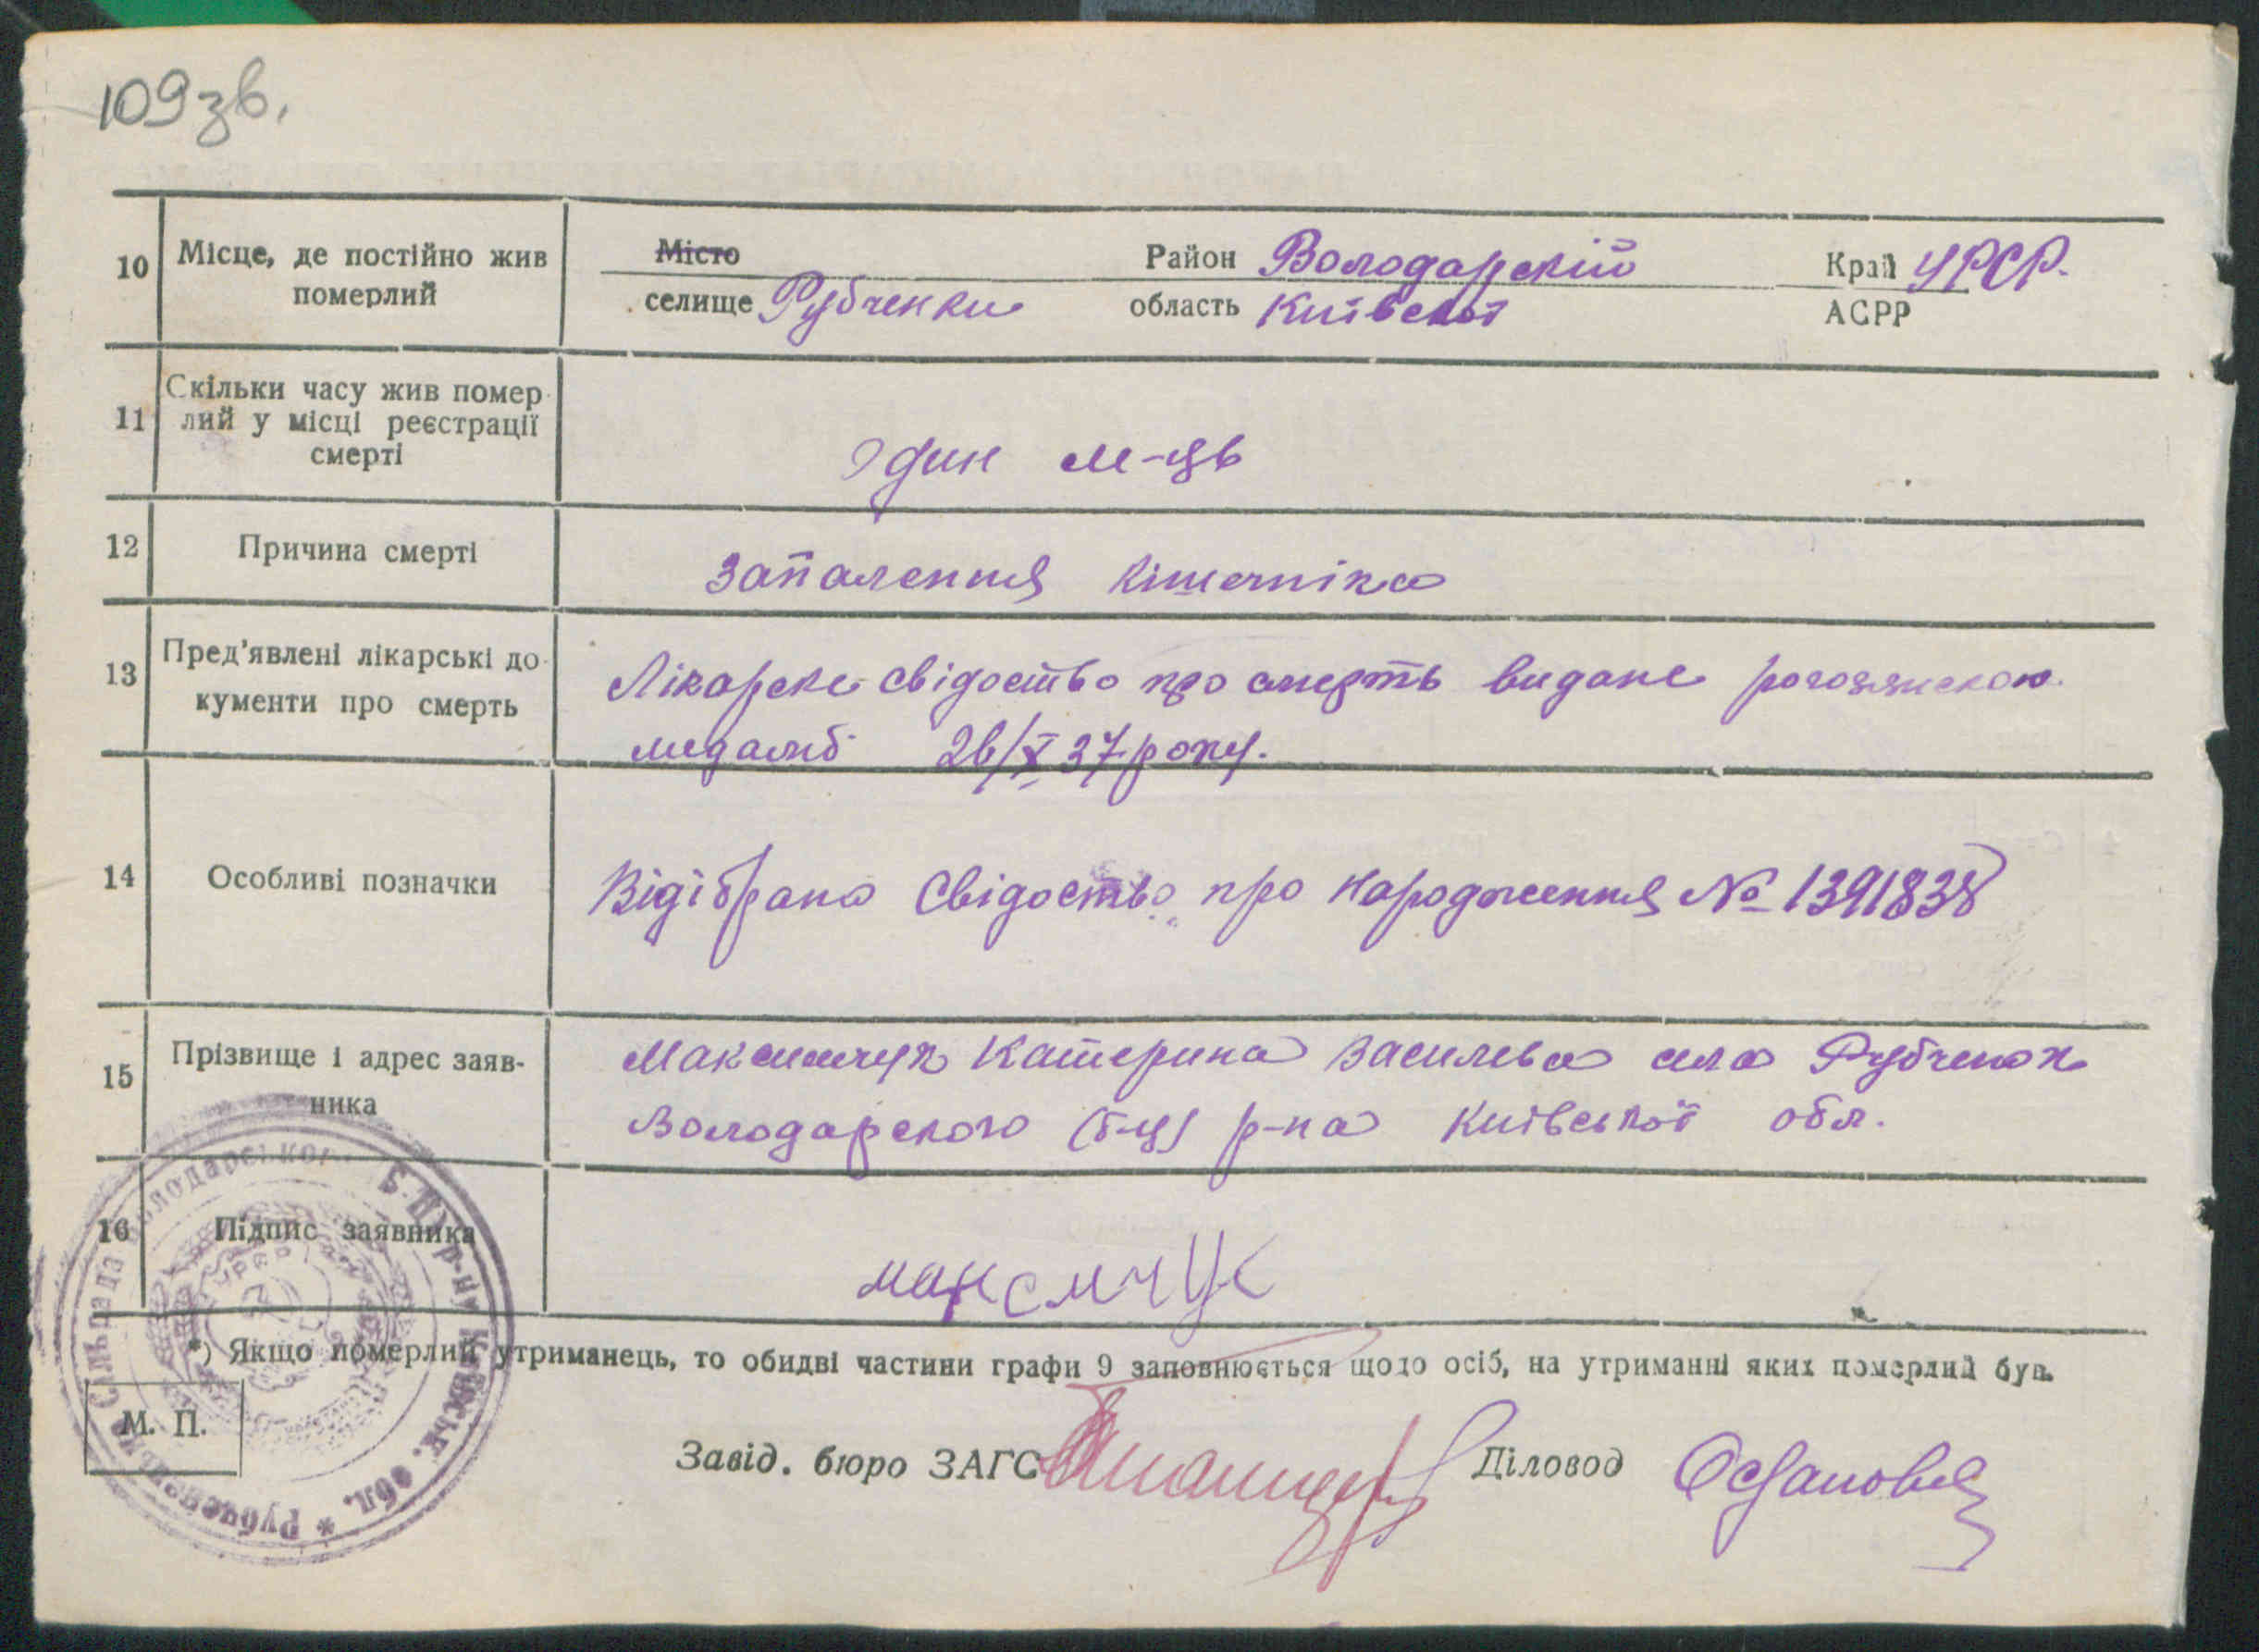 109 зв.
10 Місце, де постійно жив померлий
Місто Район Володарскій Край УРСР.
селище Рубченки область Київскої АСРР
11 Скільки часу жив помер-
лий у місці реєстрації
смерті
один м-ць
12 Причина смерті запалення кішечніка
13 Пред'явлені лікарські до-
кументи про смерть
Лікарске свідоство про смерть видане
26/X 37 року.
14 Особливі позначки Відібрано Свідоство про народження № 1391838
15 Прізвище і адрес заяв-
ника
Максимчук Катерина Василева села Рубченок
Володарского (б-ц) р-на Київської обл.
16 Підпис заявника
максмчук
*) Якщо померлий утриманець, то обидві частини графи 9 заповнюється щодо осіб, на утриманні яких померлий був.
М. П.
Завід. бюро ЗАГС Діловод
Сільрада Володарсько Б-Ц р-ну Київськ. обл. *
УРСР